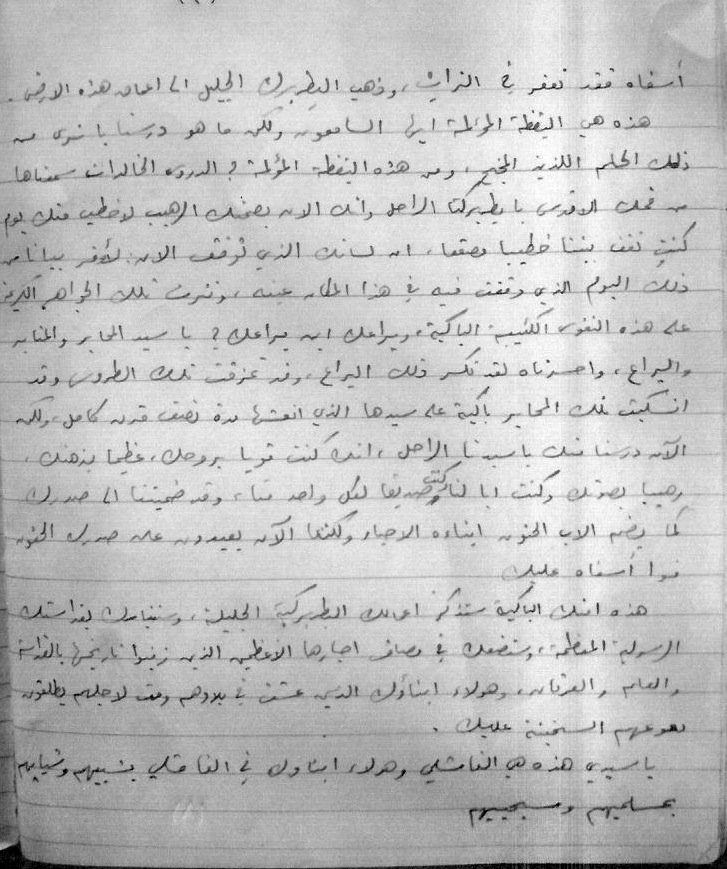 أسفاه فقد تعفر في التراب، وذهب البطريرك الجليل الى اعماق هذه الارض.
هذه هي اليقظة المؤلمة ايها السامعون ولكن ما هو درسنا يا ترى من
ذلك الحلم اللذيذ المجنح، ومن هذه اليقظة المؤلمة؟ الدروس الخالدات سمعناها
من فمك الاقدس يا بطريركنا الراحل وانك الان بصمتك الرهيب لاخطب منك يوم
كنت تقف بيننا خطيبا مصقعا، اين لسانك الذي توقف الان
ذلك اليوم الذي وقفت فيه في هذا المكان عينه، ونثرت تلك الجواهر الكريمة
على هذه النفوس الكئيبة الباكية، ويراعك اين يراعك؟ يا سيد المحابر والمنابر
واليراع، واحسرتاه لقد تكسر ذلك اليراع، وقد تمزقت تلك الطروس وقد
انسكبت تلك المحابر باكية على سيدها الذي انعشها مدة نصف قرن كامل، ولكن
الآن درسنا منك يا سيدنا الراحل، انك كنت قويا بروحك، عظيما بذهنك،
رهيبا بصوتك وكنت ابا لنا وكنت صديقا لكل واحد منا، وقد ضميتنا الى صدرك
كما يضم الاب الحنون ابناءه الاحباء ولكننا الآن بعيدون عن صدرك الحنون
فوا أسفاه عليك
هذه امتك الباكية ستذكر اعمالك البطريركية الجليلة، بقداستك
الرسولية المعظمة، وستضعك في مصاف احبارها الاعظمين الذين زينوا تاريخها بالقداسة
والعلم والعرفان، وهولاء ابناؤك الذين عشت في بلادهم ومت لاجلهم يطلقون
دموعهم السخينة عليك.
يا سيدي هذه هي القامشلي وهولاء ابناؤك في القامشلي بشيبهم وشبابهم
بمسلميهم ومسيحييهم